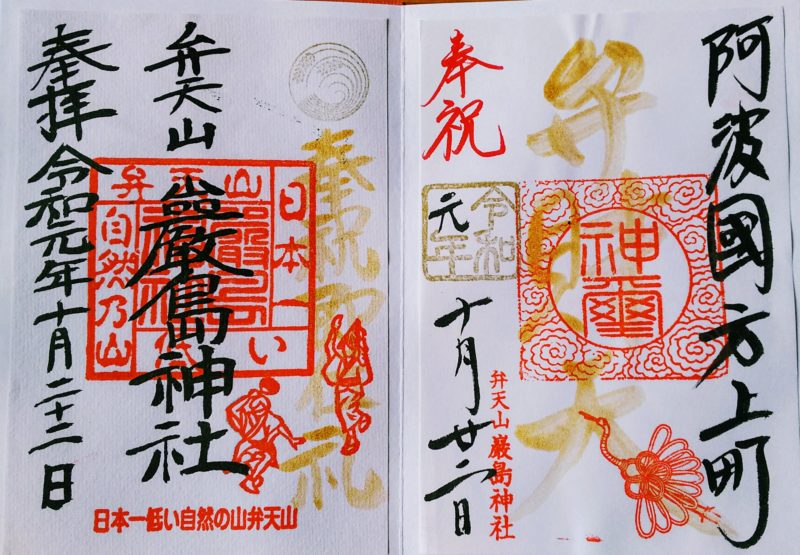 阿波國方上町
神璽
弁財天
奉祝
令和
元年
十月廿二日
弁天山 巌島神社
奉祝即位礼
弁天山
巌島神社
弁天山
日本一
低い
自然乃山
奉拝 令和元年十月二十二日
日本一低い自然の山弁天山